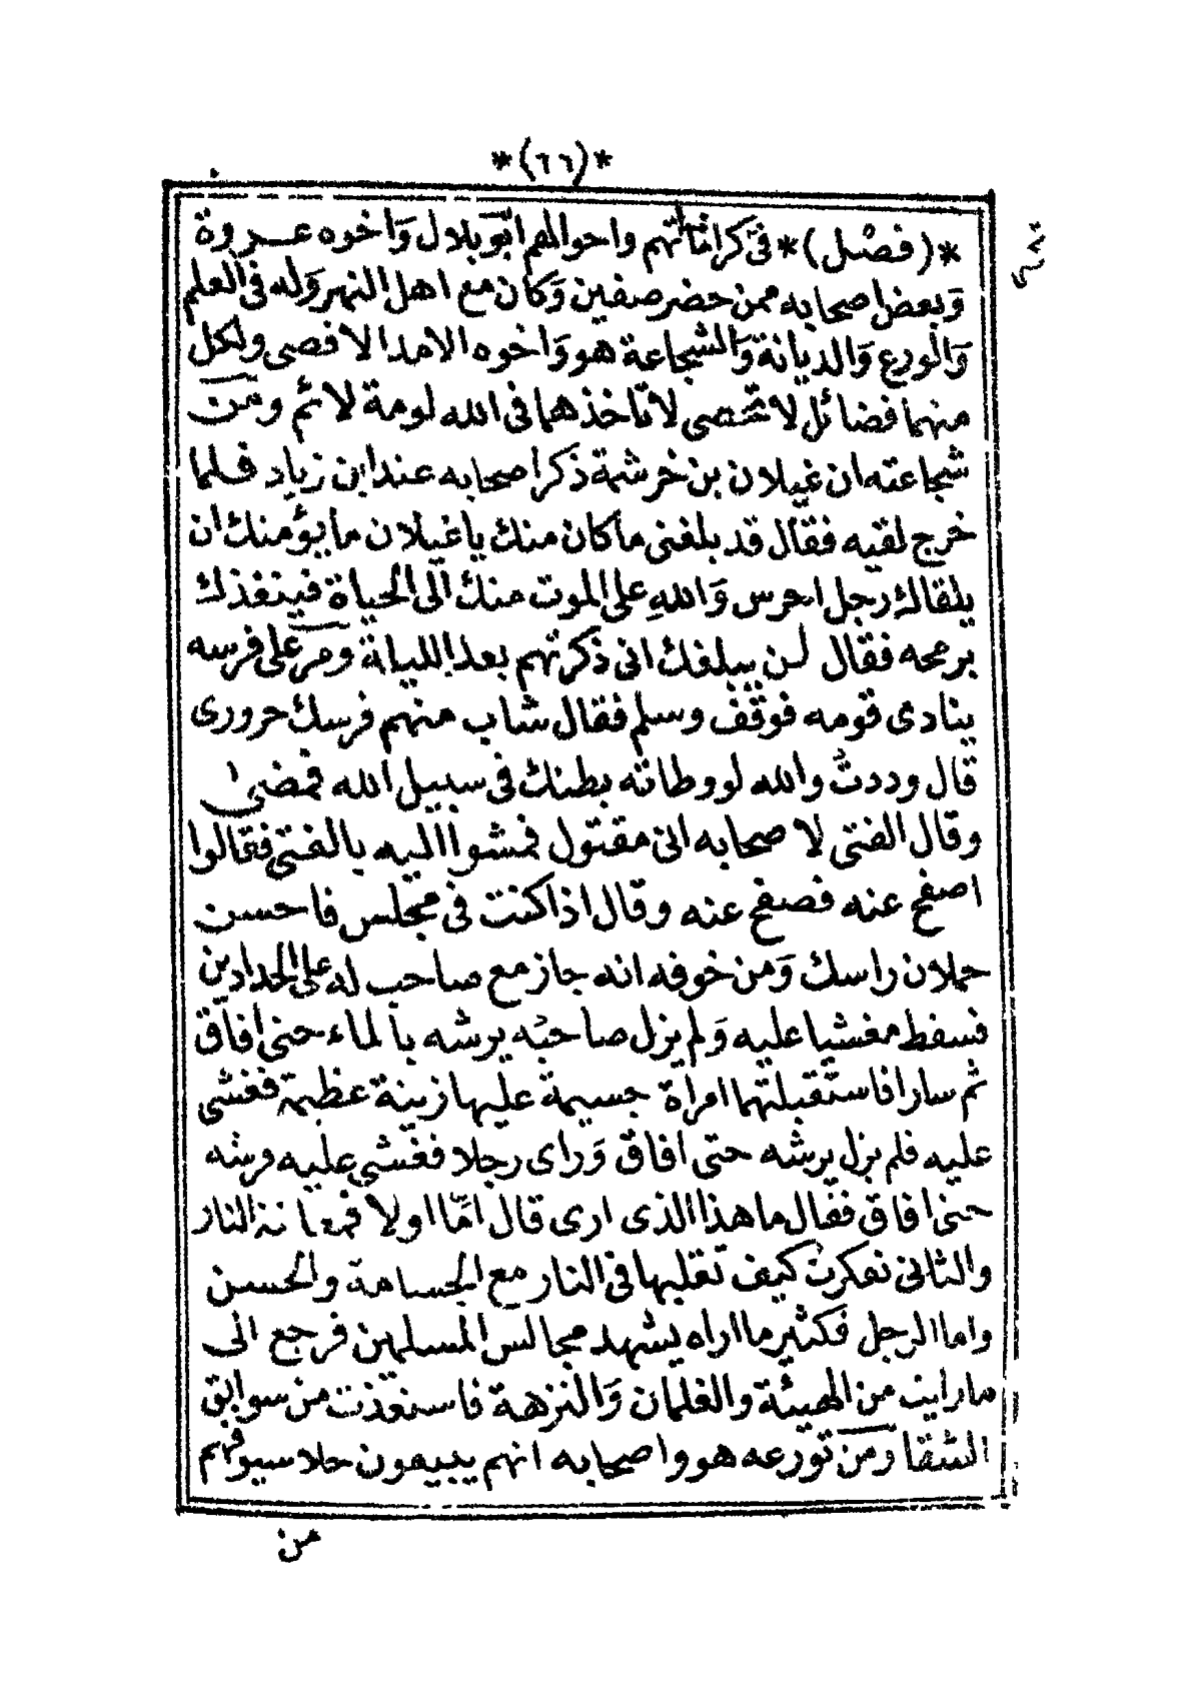 *(٦٦)*
*(فصل)* فى كراماتهم واحوالهم ابو بلال وَاخوه عـروة
وَبعض اصحابه ممن حضر صفين وَكان مع اهل النهر وَله فى العلم
وَالورع وَالديانة وَالشجاعة هو وَاخوه الامد الاقصى ولكل
منهما فضائل لا تحصى لا تاخذهما فى الله لومة لائم ومن
شجاعته ان غيلان بن خرشة ذكر اصحابه عند ابن زياد فـلما
خرج لقيه فقال قد بلغنى ما كان منك يا غيلان ما يؤمنك ان
يلقاك رجل احرس وَاللهِ على الموت منك الى الحياة فينفذك
برمحه فقال لـن يبلغك انى ذكرتهم بعد الليلة ومر على فرسه
ينادى قومه فوقف وسلم فقال شاب منهم فرسك حرورى
قال وددتُ والله لو وطاته بطنك فى سبيل الله فمضى
وقال الفتى لاصحابه انى مقتول فمشوا اليه بالفتى فقالوا
اصفح عنه فصفح عنه وقال اذا كنت فى مجلس فاحسن
حملان راسك وَمن خوفه انه جاز مع صاحب له على الحدادين
فسقط مغشيا عليه وَلم يزل صاحبه يرشه بالماء حتى افاق
ثم سارا فاستقبلتهما امراة جسيمة عليها زينة عظيمة فغشى
عليه فلم يزل يرشه حتى افاق وَراى رجلا فغشى عليه ورشه
حتى افاق فقال ما هذا الذى ارى قال امّا اولا فمعاينة النار
والثانى تفكرت كيف تقلبها فى النار مع الجسامة والحسن
واما الرجل فكثير ما اراه يشهد مجالس المسلمين فرجع الى
ما رايت من الهيئة والغلمان وَالنزهة فاستعذت من سوابق
الشقا ومن تورعه هو واصحابه انهم يبيعون حلا سيوفهم
من